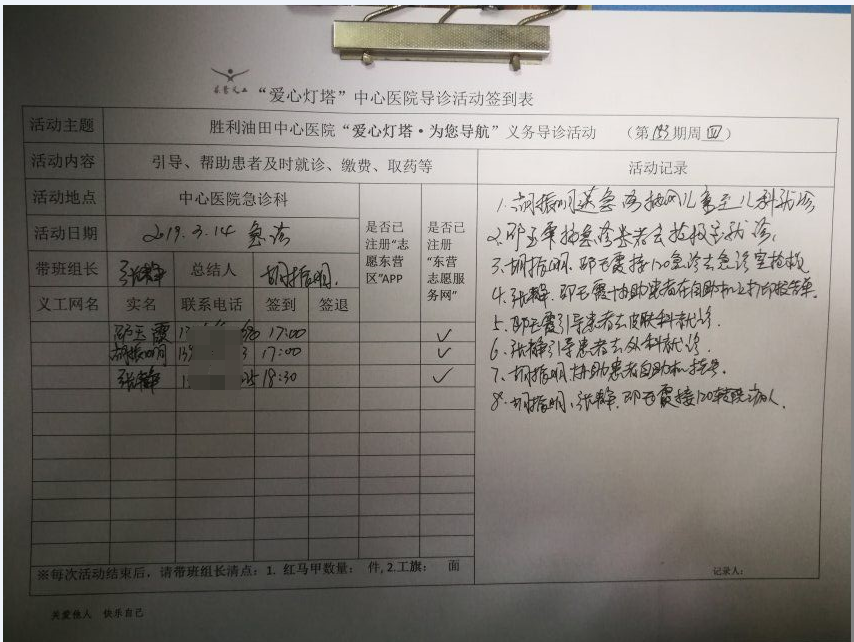 “爱心灯塔”中心医院导诊活动签到表
活动主题 胜利油田中心医院“爱心灯塔·为您导航”义务导诊活动 （第193期周四）
活动内容 引导、帮助患者及时就诊、缴费、取药等 活动记录
活动地点 中心医院急诊科
活动日期 2019.3.14 急诊
是否已注册“志愿东营区”APP
是否已注册“东营志愿服务网”
带班组长 张静 总结人 胡振明
义工网名 实名 联系电话 签到 签退
邱玉霞 17:00 ✓
胡振明 17:00 ✓
张静 18:30 ✓
1.胡振明送急诊 儿童至儿科就诊
2.邱玉霞 急诊患者去 就诊.
3.胡振明.邱玉霞接120急诊去急诊室抢救
4.张静.邱玉霞协助患者在自助机上打印报告单.
5.邱玉霞引导患者去皮肤科就诊.
6.张静引导患者去外科就诊.
7.胡振明协助患者自助机挂号.
8.胡振明、张静.邱玉霞接120转院病人.
※每次活动结束后，请带班组长清点：1. 红马甲数量： 件, 2.工旗： 面
记录人：
关爱他人 快乐自己